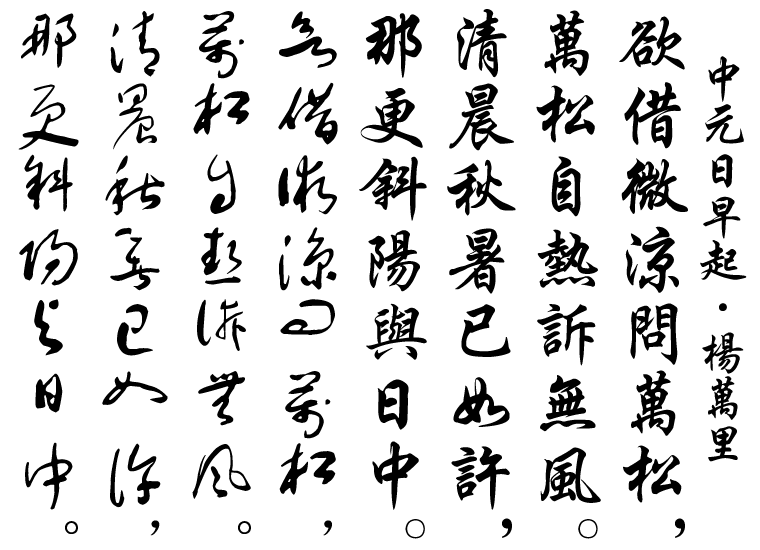 中元日早起·楊萬里
欲借微涼問萬松,
萬松自熱訴無風。
清晨秋暑已如許,
那更斜陽與日中。
欲借微涼問萬松,
萬松自熱訴無風。
清晨秋暑已如許,
那更斜陽與日中。